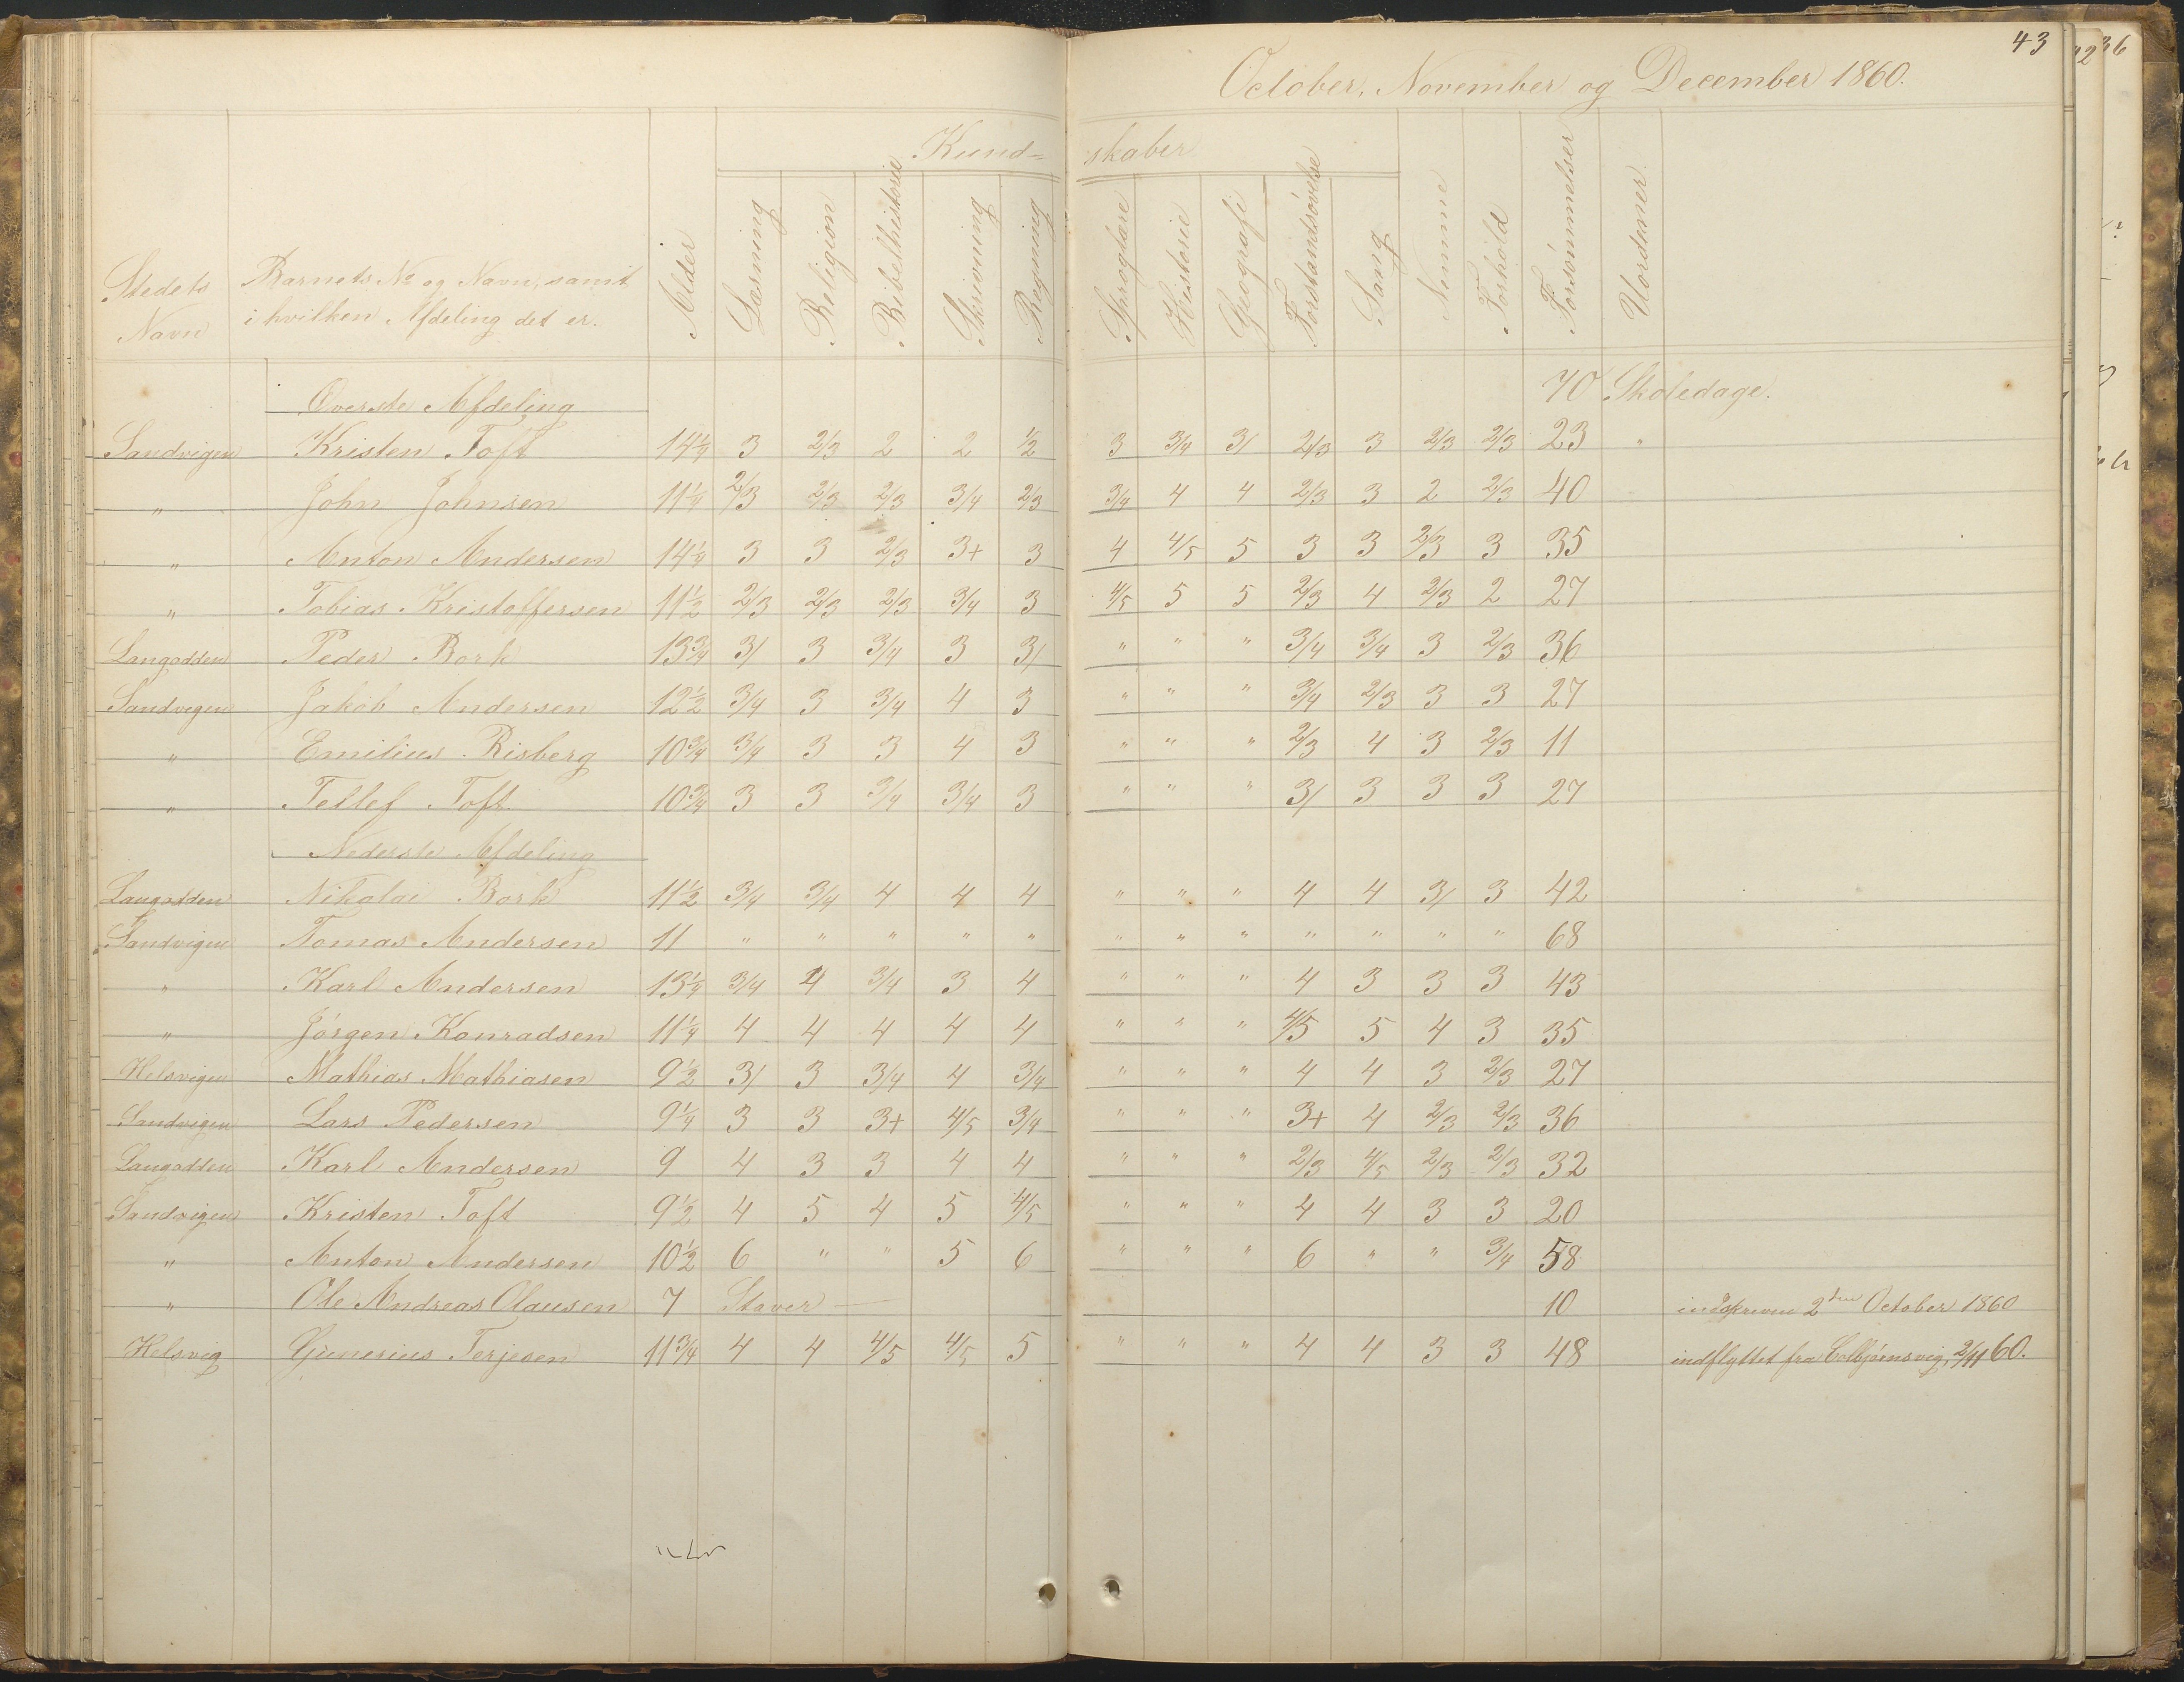 43
October, November og December 1860.
Kund= skaber
Stedets Navn | Barnets No og Navn, samt i hvilken Afdeling det er. | Alder | Læsning | Religion | Bibelhistorie | Skrivning | Regning | Sproglære | Historie | Geografi | Forstandsøvelse | Sang | Nemme | Forhold | Forsømmelser | Uordener.
Øverste Afdeling 70 Skoledage.
Sandvigen Kristen Toft 14 1/4 3 2/3 2 2 1/2 3 3/4 3/ 2/3 3 2/3 2/3 23 "
" John Johnsen 11 1/4 2/3 2/3 2/3 3/4 2/3 3/4 4 4 2/3 3 2 2/3 40
" Anton Andersen 14 1/4 3 3 2/3 3+ 3 4 4/5 5 3 3 2/3 3 35
" Tobias Kristoffersen 11 1/2 2/3 2/3 2/3 3/4 3 4/5 5 5 2/3 4 2/3 2 27
Langodden Peder Bork 13 3/4 3/ 3 3/4 3 3/ " " " 3/4 3/4 3 2/3 36
Sandvigen Jakob Andersen 12 1/2 3/4 3 3/4 4 3 " " " 3/4 2/3 3 3 27
" Emilius Risberg 10 3/4 3/4 3 3 4 3 " " " 2/3 4 3 2/3 11
" Tellef Toft 10 3/4 3 3 3/4 3/4 3 " " " 3/ 3 3 3 27
Nederste Afdeling
Langodden Nikolai Bork 11 1/2 3/4 3/4 4 4 4 " " " 4 4 3/ 3 42
Sandvigen Tomas Andersen 11 " " " " " " " " " " " " 68
" Karl Andersen 13 1/4 3/4 4 3/4 3 4 " " " 4 3 3 3 43
" Jørgen Konradsen 11 1/4 4 4 4 4 4 " " " 4/5 5 4 3 35
Helsvigen Mathias Mathiasen 9 1/2 3/ 3 3/4 4 3/4 " " " 4 4 3 2/3 27
Sandvigen Lars Pedersen 9 1/4 3 3 3+ 4/5 3/4 " " " 3+ 4 2/3 2/3 36
Langodden Karl Andersen 9 4 3 3 4 4 " " " 2/3 4/5 2/3 2/3 32
Sandvigen Kristen Toft 9 1/2 4 5 4 5 4/5 " " " 4 4 3 3 20
" Anton Andersen 10 1/2 6 " " 5 6 " " " 6 " " 3/4 58
" Ole Andreas Olausen 7 Staver — 10 indskreven 2den October 1860
Helsvig Gunerius Terjesen 11 3/4 4 4 4/5 4/5 5 " " " 4 4 3 3 48 indflyttet fra Colbjørnsvig, 2/11 60.